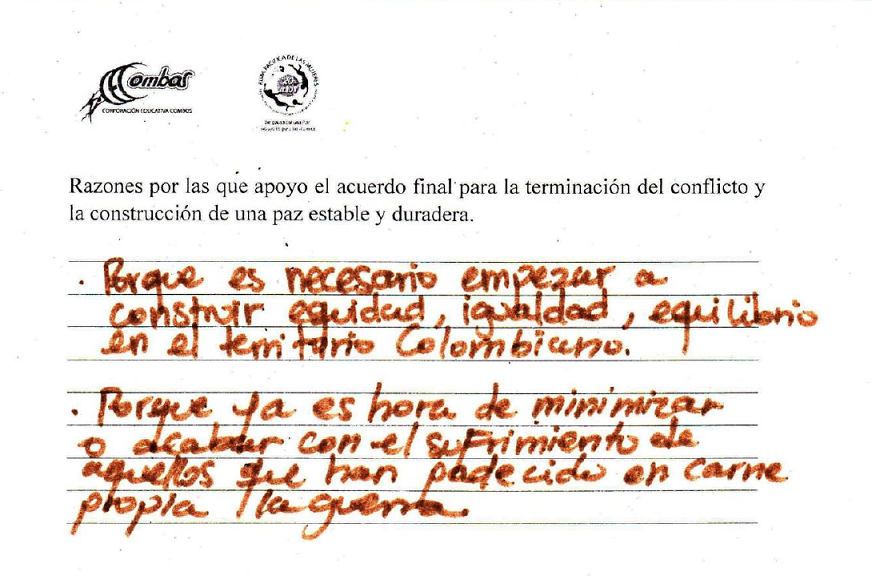 Combos
CORPORACIÓN EDUCATIVA COMBOS
RUTA PACÍFICA DE LAS MUJERES
Razones por las que apoyo el acuerdo final para la terminación del conflicto y
la construcción de una paz estable y duradera.
. Porque es necesario empezar a
construir equidad, igualdad, equilibrio
en el territorio Colombiano.
. Porque ya es hora de minimizar
o acabar con el sufrimiento de
aquellos que han padecido en carne
propia la guerra.